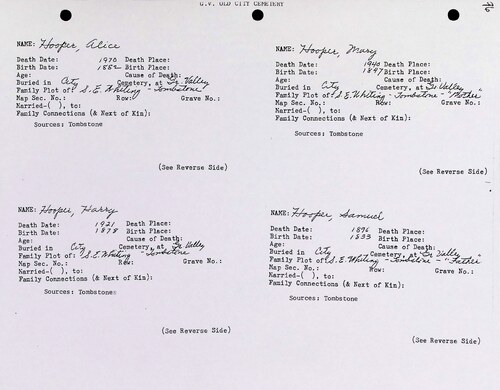 G.V. OLD CITY CEMETERY
NAME: Hooper, Alice
Death Date: 1970 Death Place:
Birth Date: 1882 Birth Place:
Age: Cause of Death:
Buried in City Cemetery, at Gr. Valley
Family Plot of: S. E. Whiting - Tombstone
Map Sec. No.: Row: Grave No.:
Married-( ), to:
Family Connections (& Next of Kin):
Sources: Tombstone
(See Reverse Side)
NAME: Hooper, Mary
Death Date: 1940 Death Place:
Birth Date: 1847 Birth Place:
Age: Cause of Death:
Buried in City Cemetery, at Gr Valley
Family Plot of: S. E. Whiting - Tombstone - "Mother"
Map Sec. No.: Row: Grave No.:
Married-( ), to:
Family Connections (& Next of Kin):
Sources: Tombstone
(See Reverse Side)
NAME: Hooper, Harry
Death Date: 1921 Death Place:
Birth Date: 1878 Birth Place:
Age: Cause of Death:
Buried in City Cemetery, at Gr Valley
Family Plot of: S. E. Whiting - Tombstone
Map Sec. No.: Row: Grave No.:
Married-( ), to:
Family Connections (& Next of Kin):
Sources: Tombstone
(See Reverse Side)
NAME: Hooper, Samuel
Death Date: 1896 Death Place:
Birth Date: 1833 Birth Place:
Age: Cause of Death:
Buried in City Cemetery, at Gr Valley
Family Plot of: S. E. Whiting - Tombstone - "Father"
Map Sec. No.: Row: Grave No.:
Married-( ), to:
Family Connections (& Next of Kin):
Sources: Tombstone
(See Reverse Side)